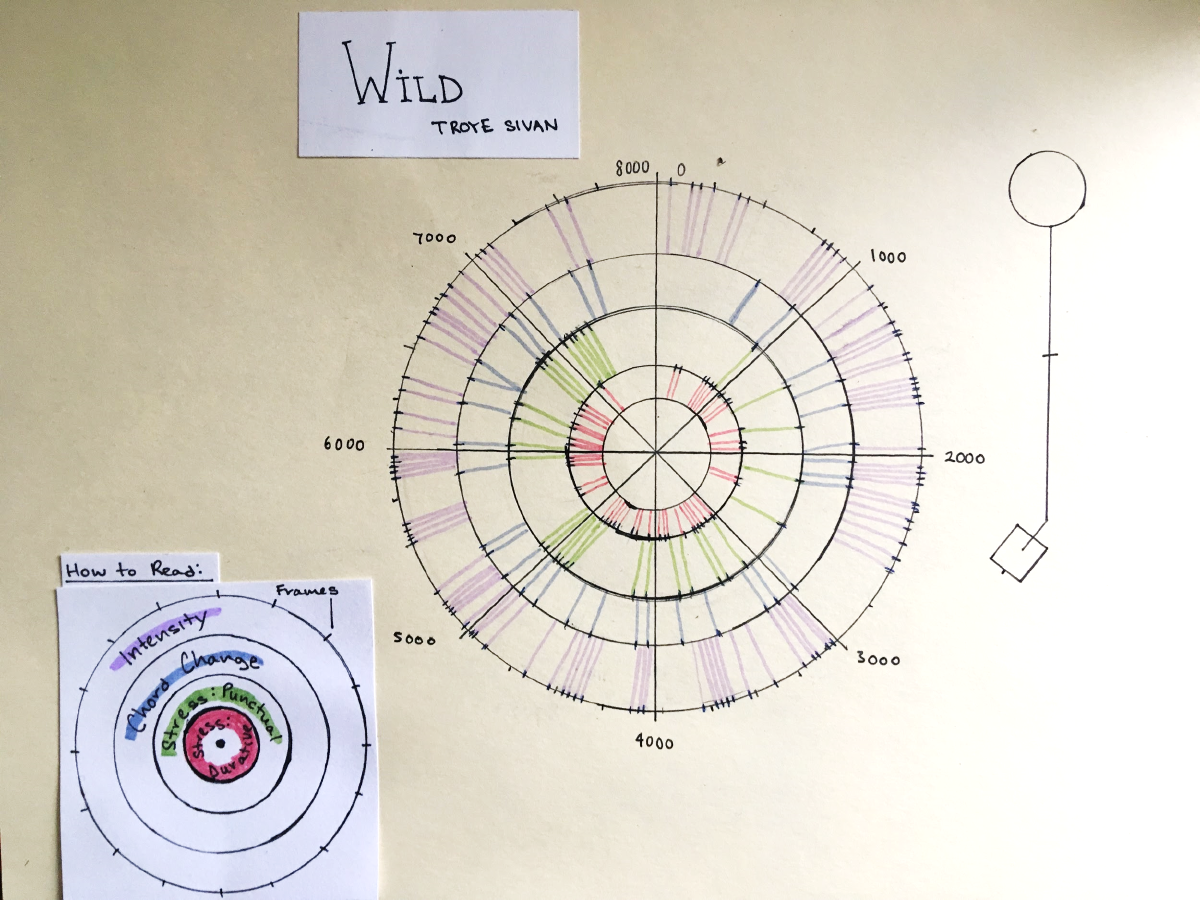 WiLD
TROYE SIVAN
8000
0
1000
2000
3000
4000
5000
6000
7000
How to Read:
Frames
Intensity
Chord Change
Stress: Punctual
Stress: